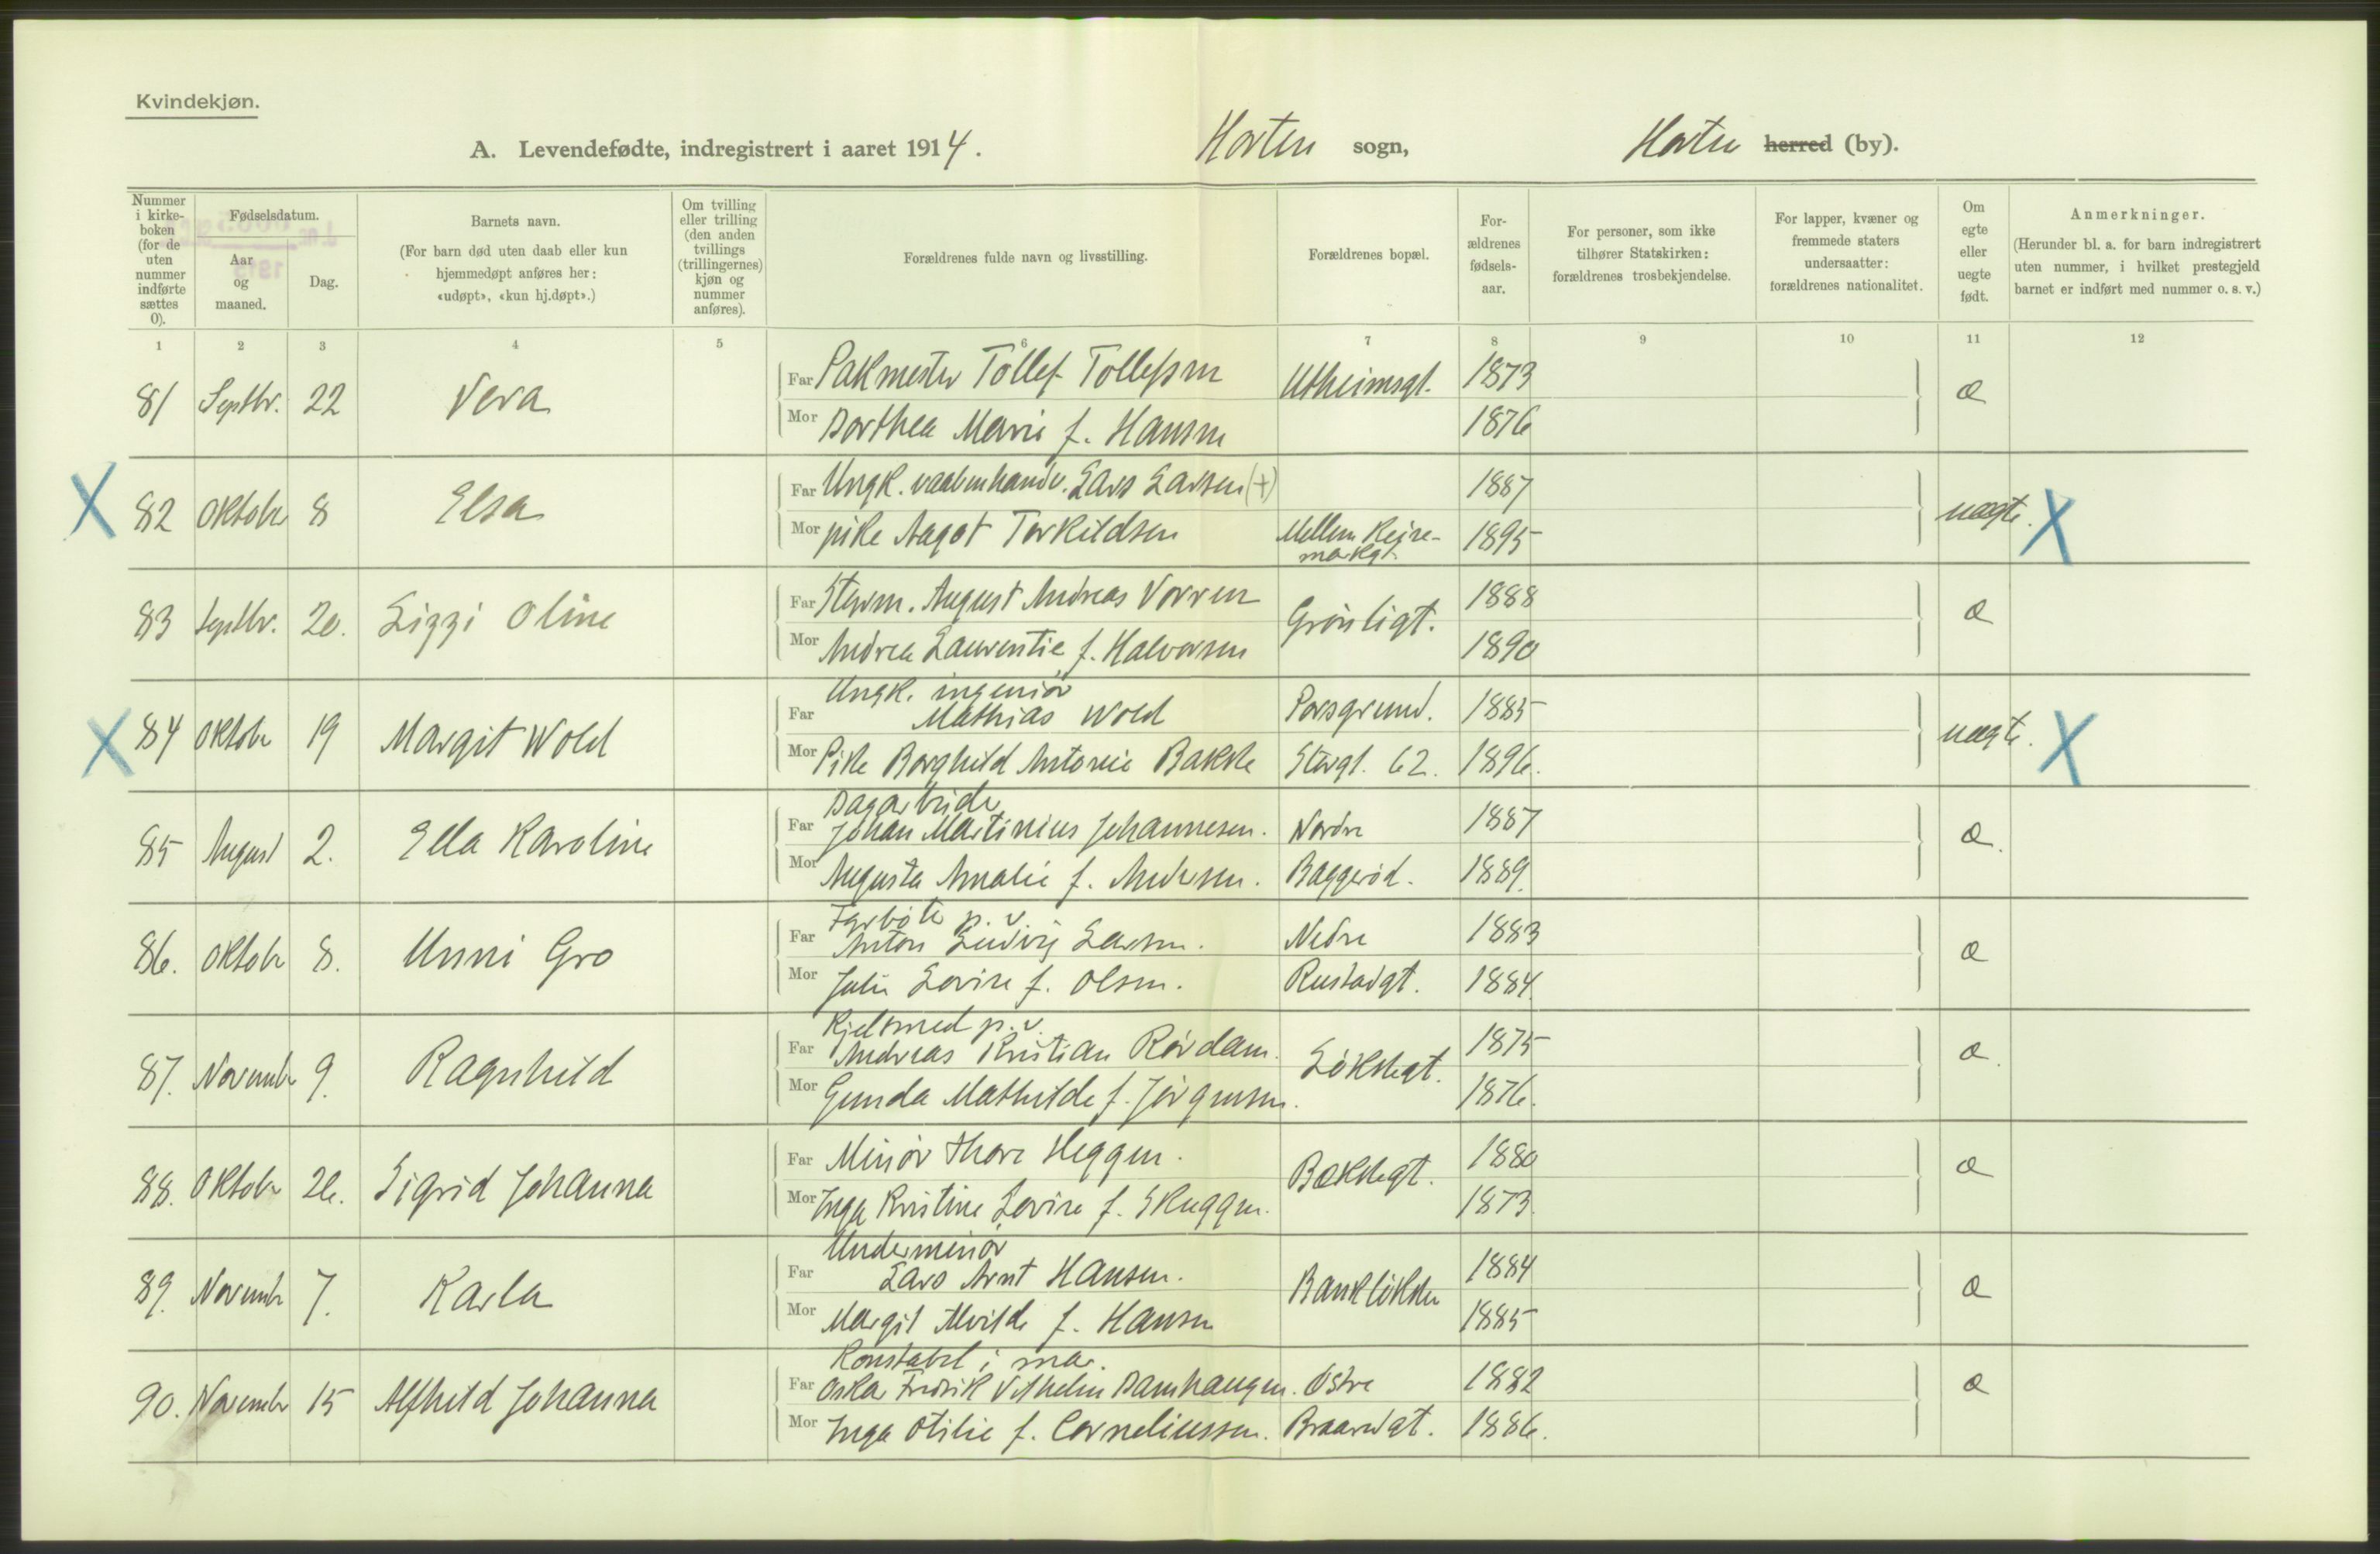 Kvindekjøn.
A. Levendefødte, indregistrert i aaret 1914. Horten sogn, Horten herred (by).
Nummer i kirkeboken (for de uten nummer indførte sættes 0).
Fødselsdatum.
Aar og maaned.
Dag.
Barnets navn.
(For barn død uten daab eller kun hjemmedøpt anføres her: «udøpt», «kun hj.døpt».)
Om tvilling eller trilling (den anden tvillings (trillingernes) kjøn og nummer anføres).
Forældrenes fulde navn og livsstilling.
Forældrenes bopæl.
For-ældrenes fødsels-aar.
For personer, som ikke tilhører Statskirken: forældrenes trosbekjendelse.
For lapper, kvæner og fremmede staters undersaatter: forældrenes nationalitet.
Om egte eller uegte født.
Anmerkninger.
(Herunder bl. a. for barn indregistrert uten nummer, i hvilket prestegjeld barnet er indført med nummer o. s. v.)
1 2 3 4 5 6 7 8 9 10 11 12
81 Septbr. 22 Vera Far Pakmester Tollef Tollefsen Utheimsgt. 1873 æ
Mor Dorthea Marie f. Hansen 1876
X 82 Oktober 8 Elsa Far Ungk. vaabenhandv. Lars Larsen (+) 1887 uægte. X
Mor pike Aagot Torkildsen Mellem Keise-markgt. 1895
83 Septbr. 20. Lizzi Oline Far Styrm. August Andreas Vorren Grønligt. 1888 æ
Mor Andrea Laurentie f. Halvorsen 1890
X 84 Oktober 19 Margit Wold Far Ungk. ingeniør
Mathias Wold Porsgrund. 1885 uægte. X
Mor Pike Borghild Antonie Bakke Storgt. 62. 1896.
85 August 2. Ella Karoline Far Dagarbeider
Johan Martinius Johannesen. Nordre 1887 æ.
Mor Augusta Amalie f. Andersen. Baggerød. 1889.
86. Oktober 8. Unni Gro Far Fyrbøter p. v.
Anton Ludvig Larsen. Nedre 1883 æ
Mor Julie Lovise f. Olsen. Rustadgt. 1884.
87. November 9. Ragnhild Far Kjelsmed p. v.
Andreas Kristian Rørdam. Løkkegt. 1875 æ.
Mor Gunda Mathilde f. Jørgensen. 1876.
88. Oktober 26. Sigrid Johanna Far Minør Thore Heggen. Bækkegt. 1880 æ
Mor Inga Kristine Lovise f. Skuggen. 1873.
89. November 7. Karla Far Underminør
Lars Arnt Hansen. Bankløkken 1884 æ
Mor Margit Alvilde f. Hansen 1885
90. November 15 Alfhild Johanna Far Konstabel i mar.
Oskar Fredrik Vilhelm Damhaugen. Østre 1882 æ
Mor Inga Otilie f. Corneliussen. Braarudgt. 1886.